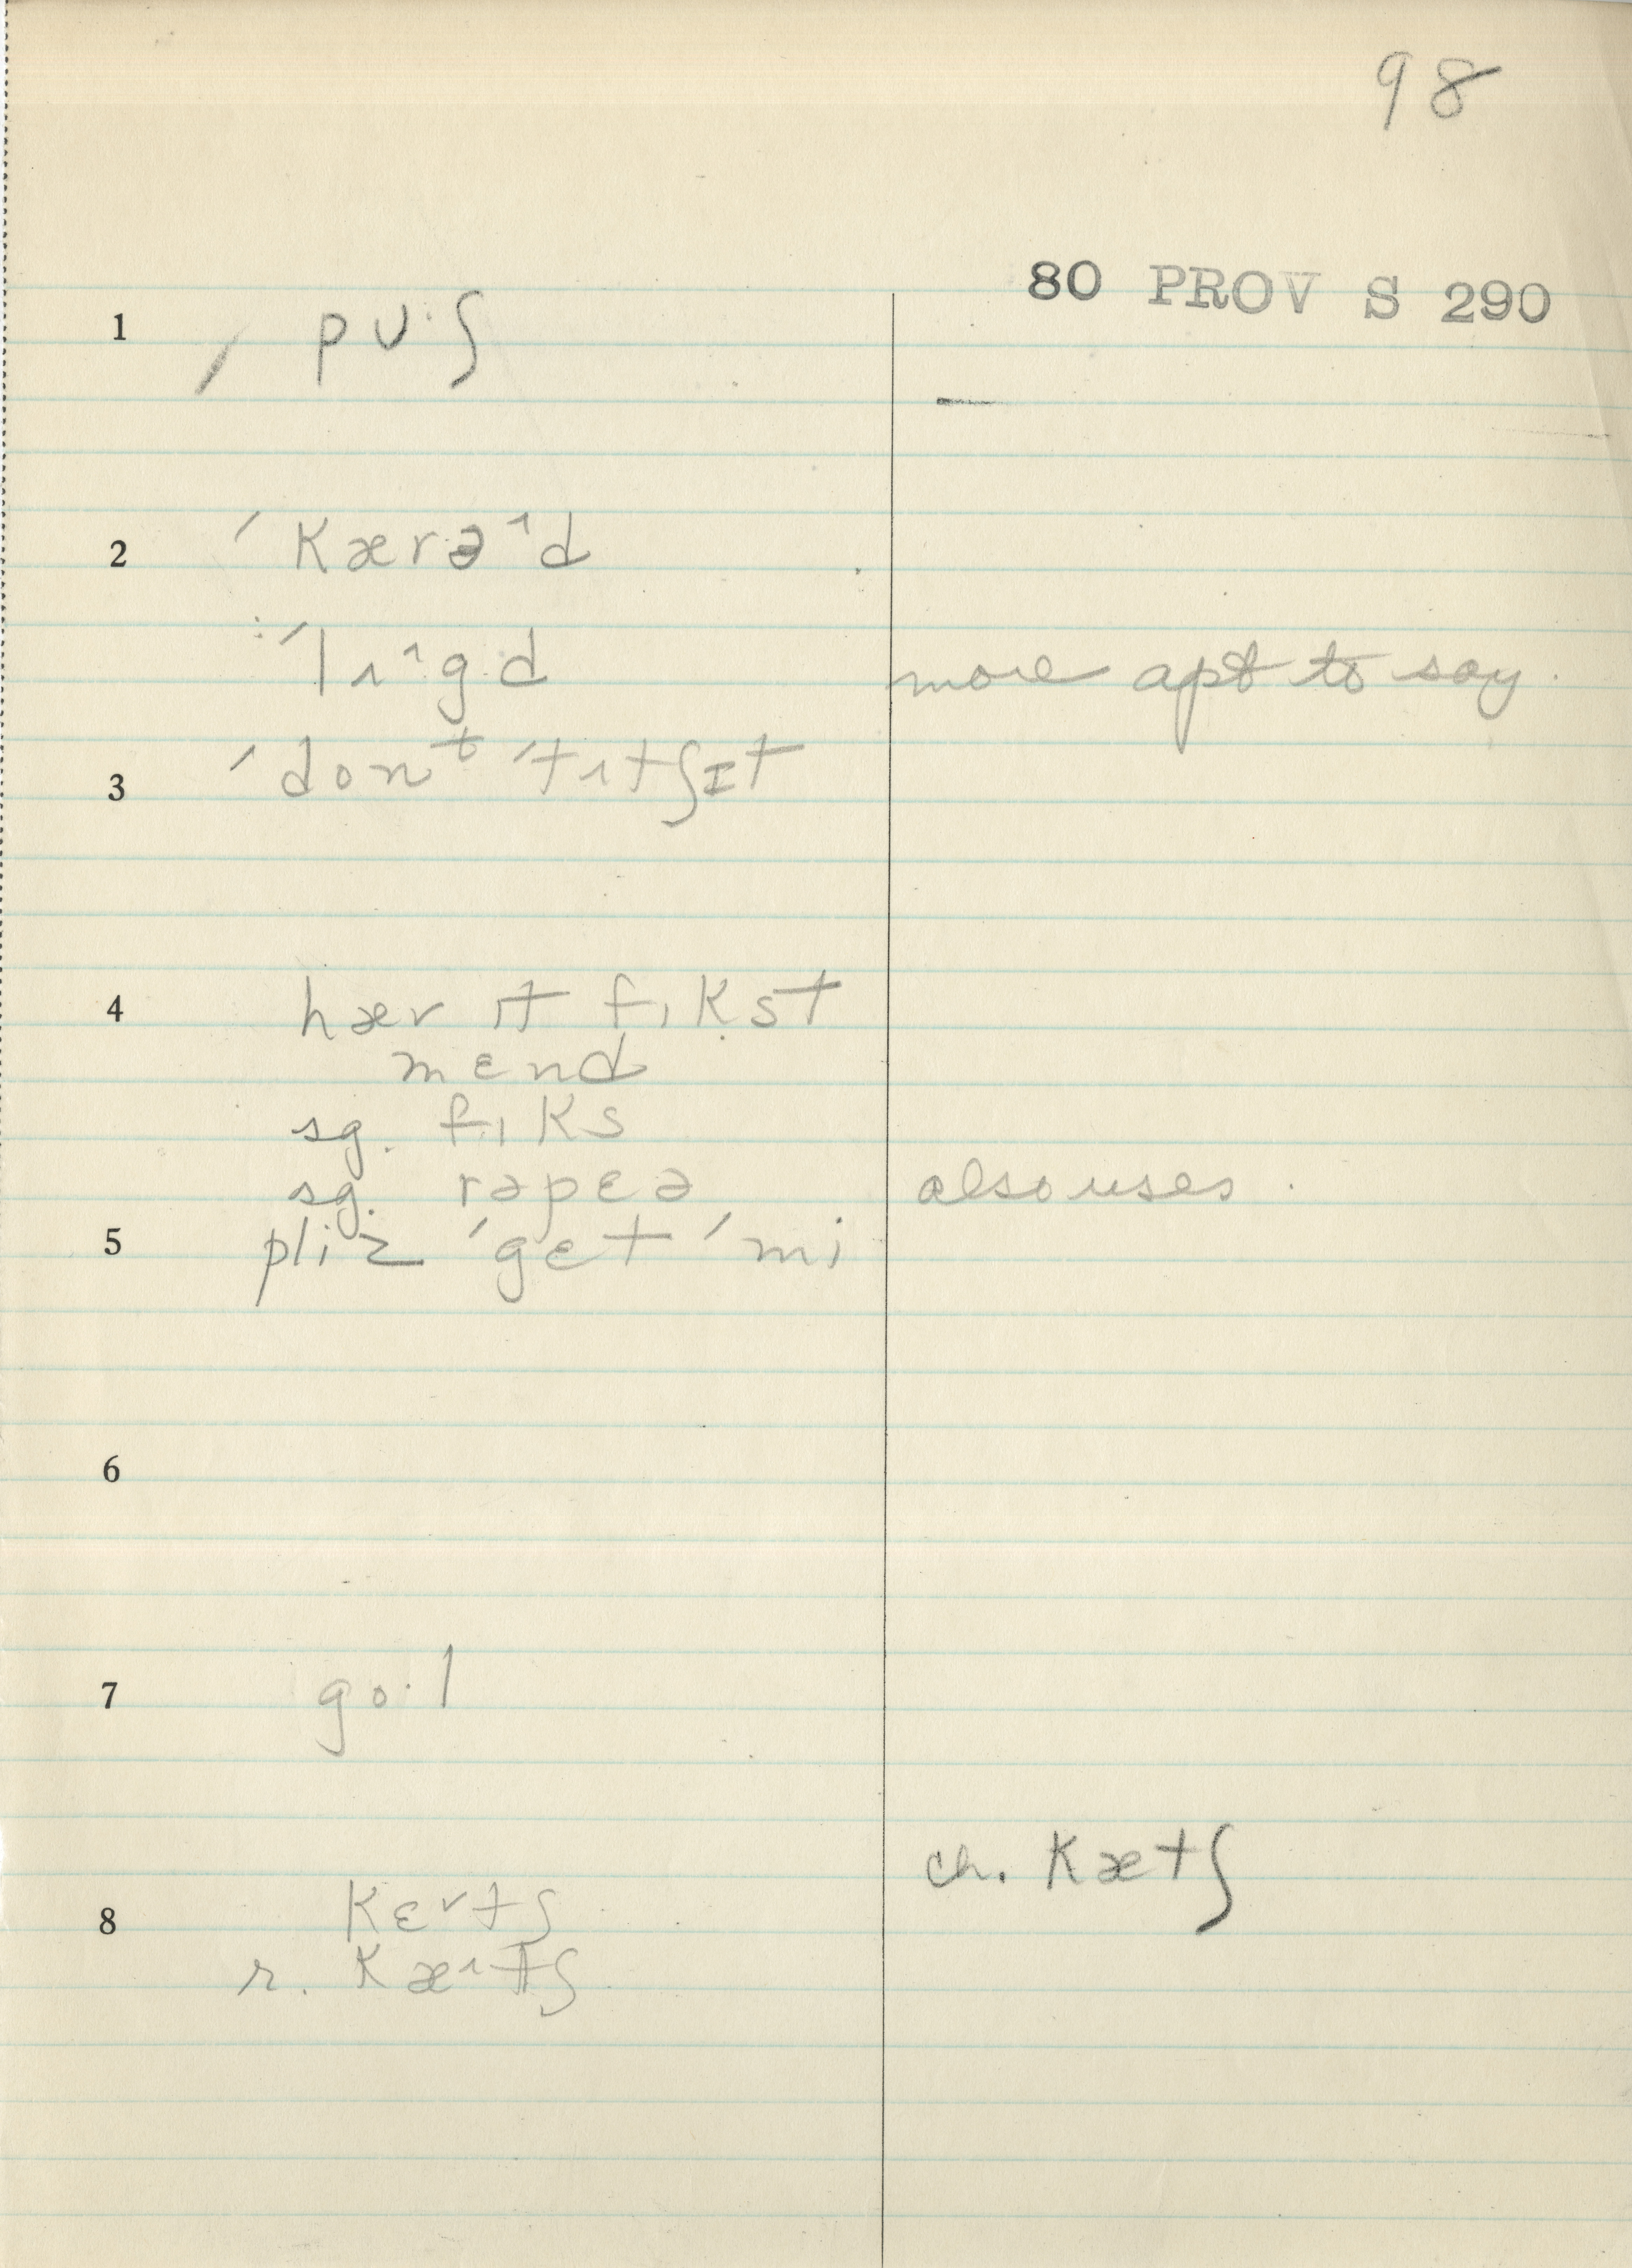 98
80 PROV S 290
1 ˏ pʊ·ʃ
2 ˊkærəˆd
ːˊlɪˆg·d more apt to say.
3 ˊdonᵗ ˊtɪtʃɪt
4 hær ɪt fɪkst
mɛnd
sg. fɪks
sg. rəpɛə also uses.
5 pliz ˊgɛt ˊmi
6
7 go·l
ch. kætʃ
8 kɛ˅tʃ
r. kæˆtʃ